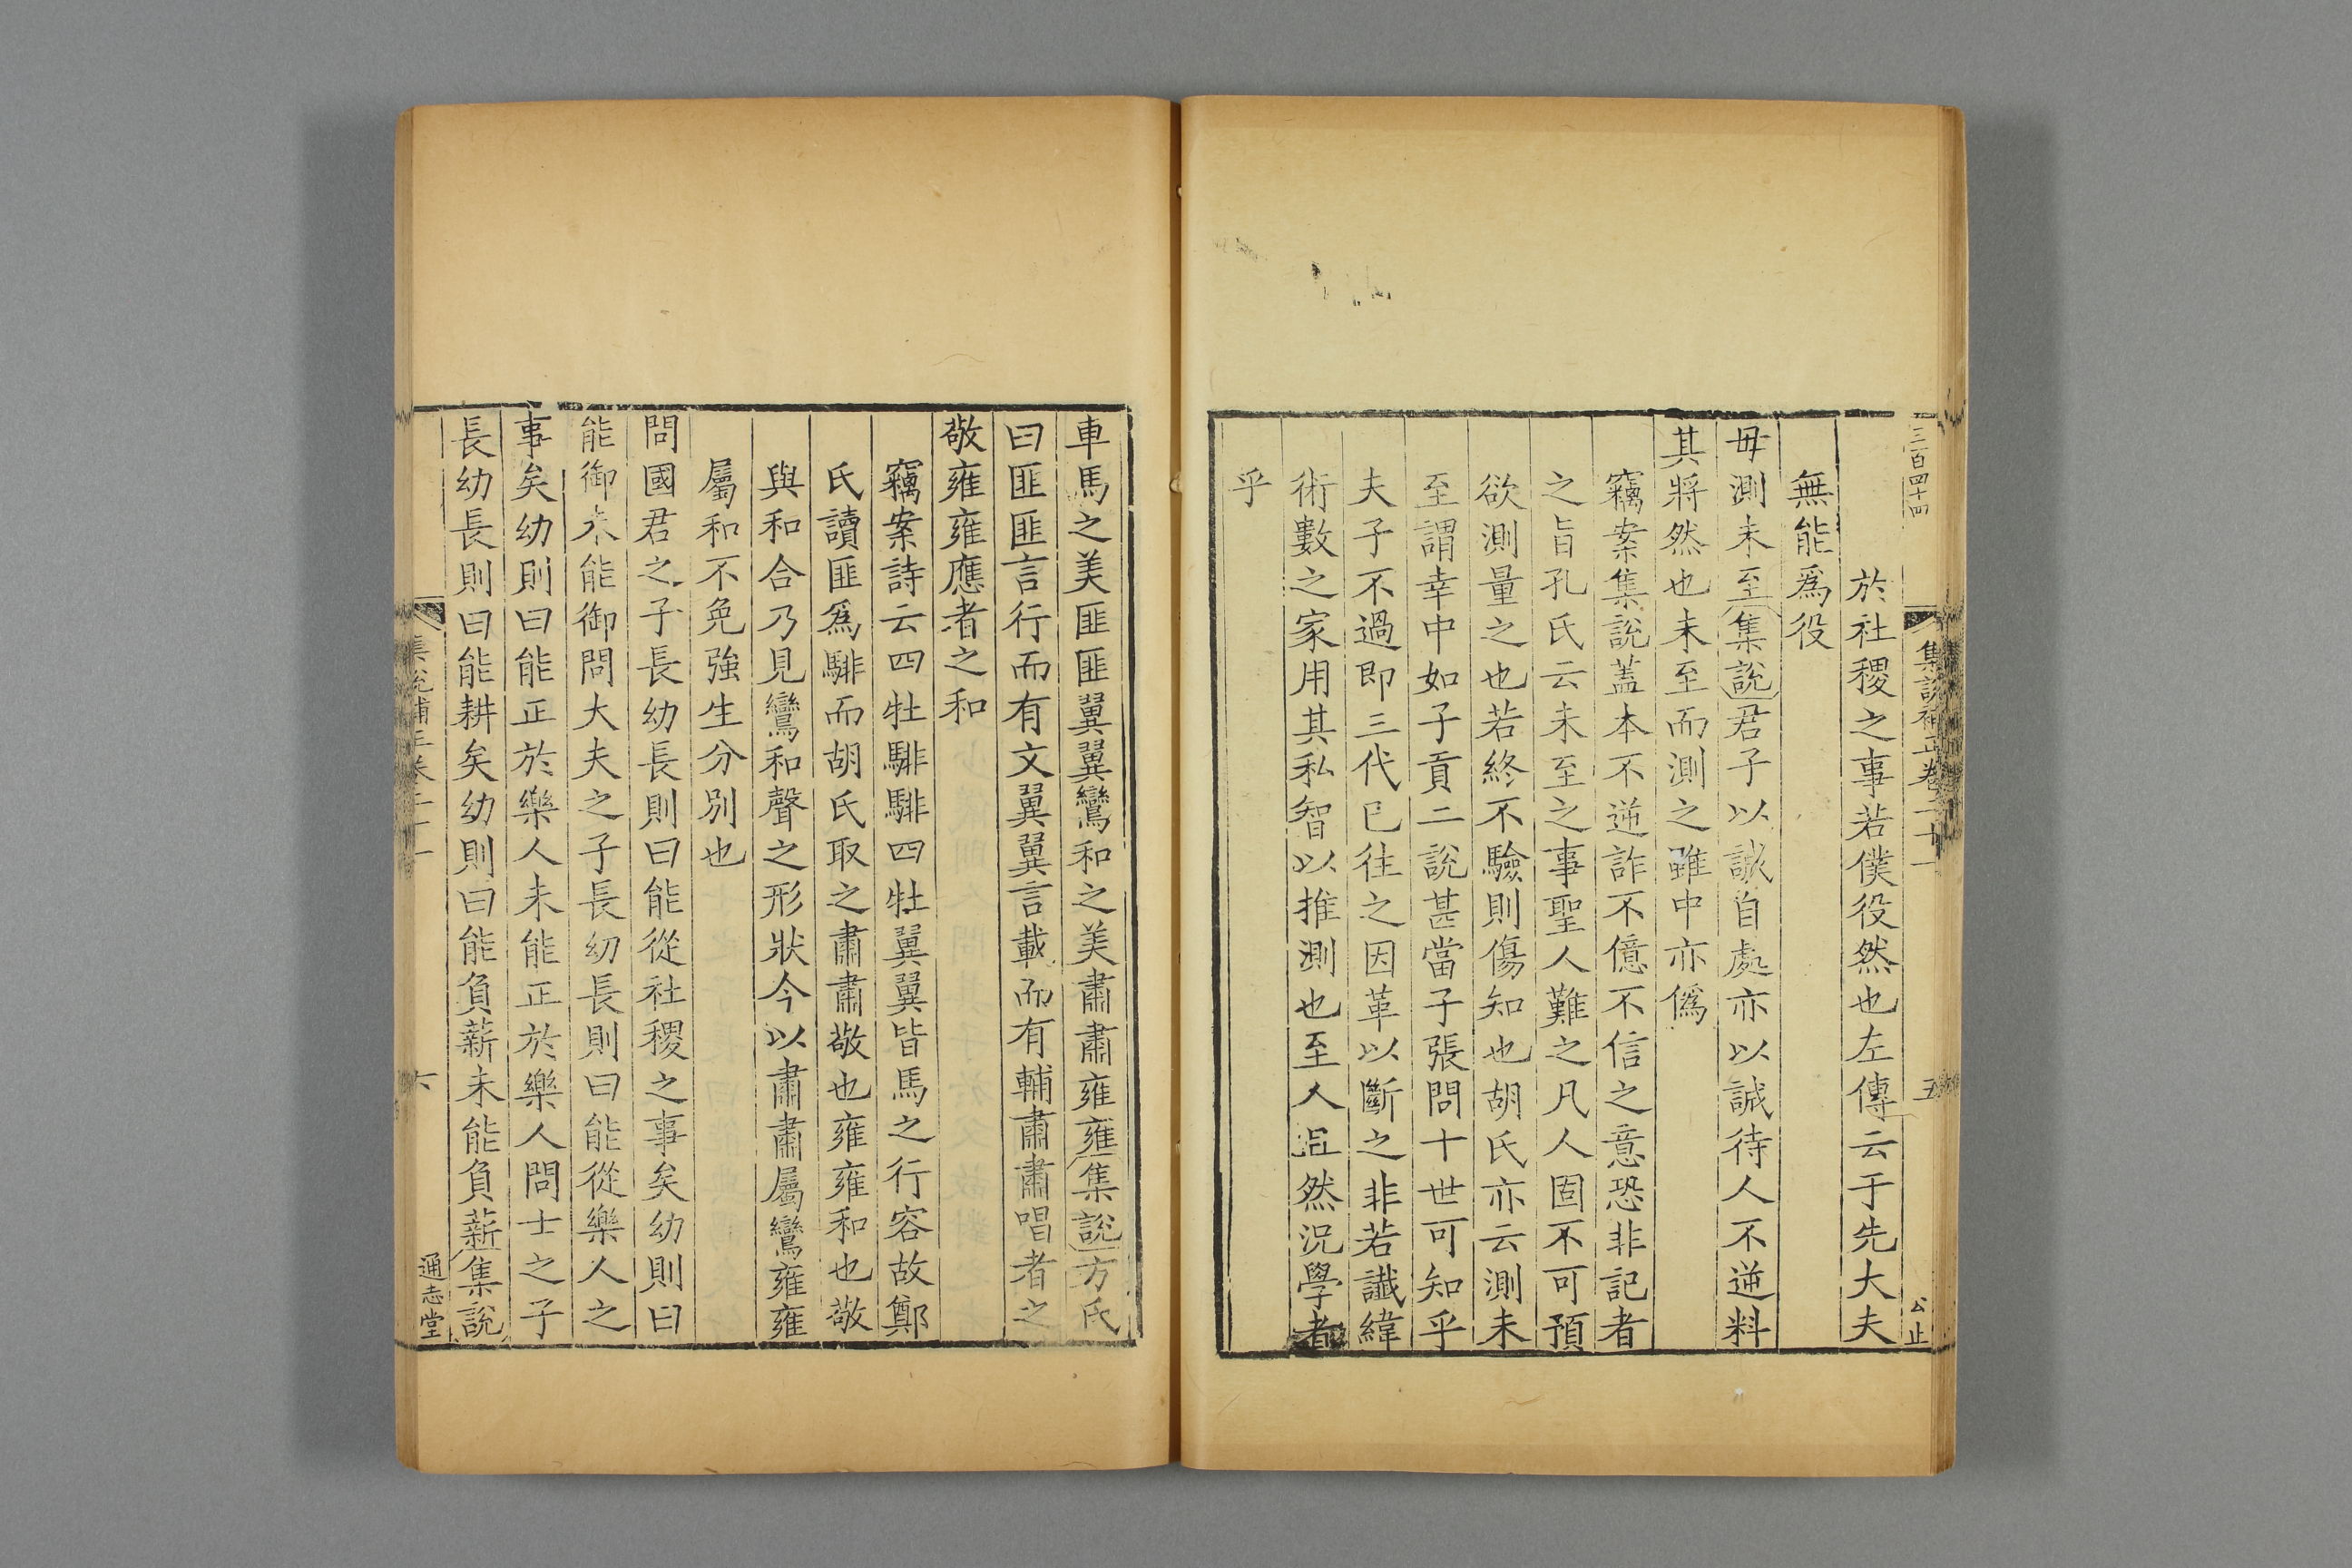 三百四十四
集說補正卷二十一
五
公止
於社稷之事若僕役然也左傳云于先大夫
無能爲役
毋測未至集說君子以誠自處亦以誠待人不逆料
其將然也未至而測之雖中亦僞
竊案集說蓋本不逆詐不億不信之意恐非記者
之旨孔氏云未至之事聖人難之凡人固不可預
欲測量之也若終不驗則傷知也胡氏亦云測未
至謂幸中如子貢二說甚當子張問十世可知乎
夫子不過即三代已往之因革以斷之非若讖緯
術數之家用其私智以推測也至人且然況學者
乎
車馬之美匪匪翼翼鸞和之美肅肅雍雍集說方氏
曰匪匪言行而有文翼翼言載而有輔肅肅唱者之
敬雍雍應者之和
竊案詩云四牡騑騑四牡翼翼皆馬之行容故鄭
氏讀匪爲騑而胡氏取之肅肅敬也雍雍和也敬
與和合乃見鸞和聲之形狀今以肅肅屬鸞雍雍
屬和不免強生分別也
問國君之子長幼長則曰能從社稷之事矣幼則曰
能御未能御問大夫之子長幼長則曰能從樂人之
事矣幼則曰能正於樂人未能正於樂人問士之子
長幼長則曰能耕矣幼則曰能負薪未能負薪集說
集說補正卷二十一
六
通志堂